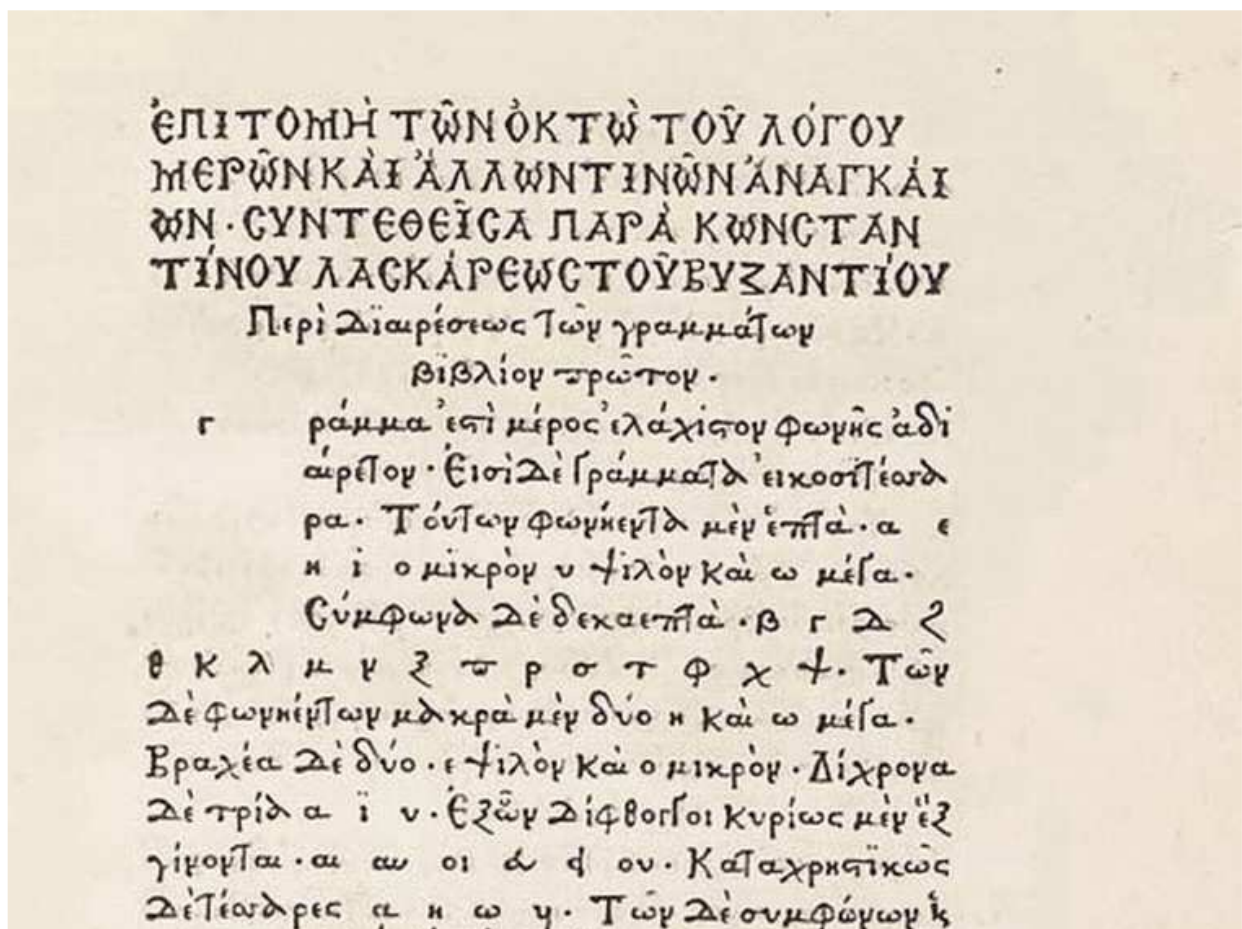 ἘΠΙΤΟΜῊ ΤΩ͂Ν ὈΚΤῺ ΤΟΥ͂ ΛΌΓΟΥ
ΜΕΡΩ͂Ν ΚᾺΙ ἌΛΛΩΝ ΤΙΝΩ͂Ν ἈΝΑΓΚΆΙ
ΩΝ · ΣΥΝΤΕΘΕΙ͂ΣΑ ΠΑΡᾺ ΚΩΝΣΤΑΝ
ΤΊΝΟΥ ΛΑΣΚΆΡΕΩΣ ΤΟΥ͂ ΒΥΖΑΝΤΊΟΥ
Περὶ Δϊαιρέσεως τῶν γραμμάτων
βϊβλίον πρῶτον ·
γ ράμμα ἐστὶ μέρος ἐλάχιστον φωνῆς ἀδι
αίρετον · Εἰσὶ Δὲ Γράμματα εἰκοσιτέσσα
ρα · Τόυτων φωνήεντα μὲν ἑπτὰ · α ε
η ϊ ο μϊκρὸν υ ψιλὸν καὶ ω μέγα ·
Σύμφωνα Δὲ δεκαεπτὰ · β γ Δ ζ
θ κ λ μ ν ξ π ρ σ τ φ χ ψ · Τῶν
Δὲ φωνηέντων μακρὰ μὲν δύο η καὶ ω μέγα ·
Βραχέα Δὲ δύο · ε ψιλὸν καὶ ο μικρὸν · Δίχρονα
Δὲ τρία α ϊ υ · Ἐξ ὧν Δίφθογγοι κυρίως μὲν ἓξ
γίνονται · αι αυ οι ει ευ ου · Καταχρηστϊκῶς
Δὲ Τέσσαρες ᾳ ῃ ῳ υι · Τῶν Δὲ συμφώνων